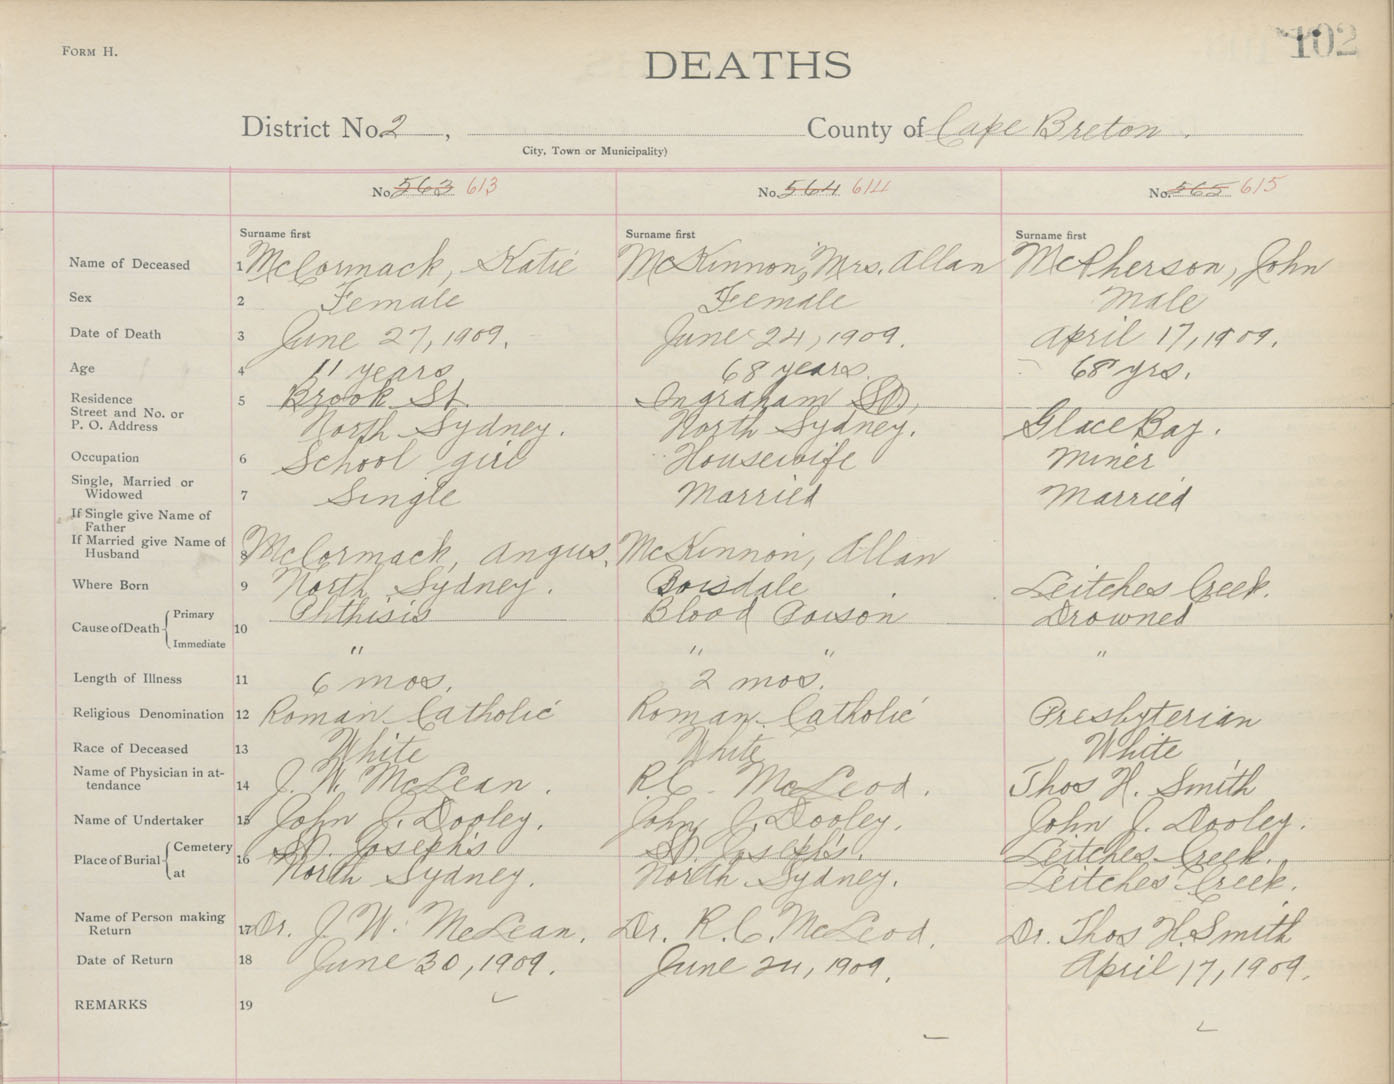 FORM H.
102
DEATHS
District No. 2 , County of Cape Breton .
City, Town or Municipality)
No. 563 613 No. 564 614 No. 565 615
Surname first Surname first Surname first
Name of Deceased 1 McCormack, Katie McKinnon, Mrs. Allan McPherson, John
Sex 2 Female Female Male
Date of Death 3 June 27, 1909. June 24, 1909. April 17, 1909.
Age 4 11 years 68 years. 68 yrs.
Residence 5 Brook St. Ingraham St.,
Street and No. or
P. O. Address North Sydney. North Sydney. Glace Bay.
Occupation 6 School girl Housewife Miner
Single, Married or
Widowed 7 Single Married Married
If Single give Name of
Father
If Married give Name of
Husband 8 McCormack, Angus. McKinnon, Allan
Where Born 9 North Sydney. Boisdale Leitches Creek.
Cause of Death Primary 10 Phthisis Blood Poison Drowned
Immediate " " " "
Length of Illness 11 6 mos. 2 mos.
Religious Denomination 12 Roman Catholic Roman Catholic Presbyterian
Race of Deceased 13 White White White
Name of Physician in at-
tendance 14 J. W. McLean. R.C. McLeod. Thos H. Smith
Name of Undertaker 15 John J. Dooley. John J. Dooley. John J. Dooley.
Place of Burial Cemetery 16 St. Joseph's St. Joseph's. Leitches Creek.
at North Sydney. North Sydney. Leitches Creek.
Name of Person making
Return 17 Dr. J. W. McLean. Dr. R. C. McLeod. Dr. Thos H. Smith
Date of Return 18 June 30, 1909. June 24, 1909. April 17, 1909.
REMARKS 19